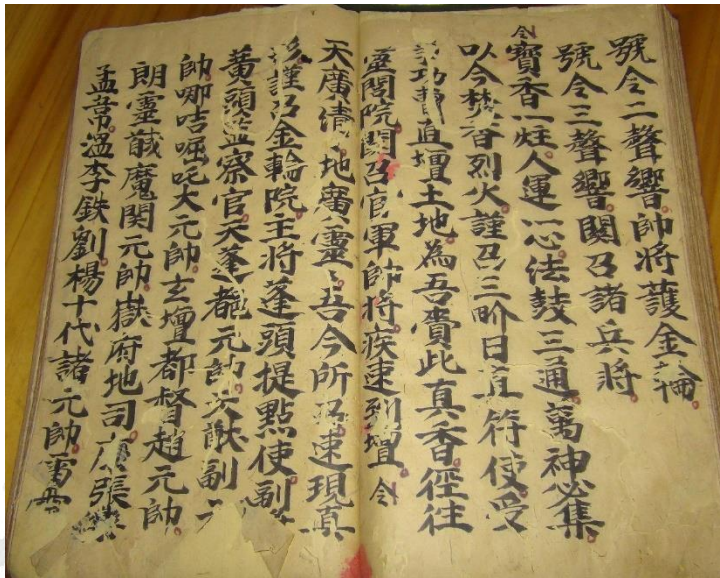 號令二聲響帥將護金輪
號令三聲響関召諸兵將
令
寳香一炷人運一心法鼓三通萬神必集
以今焚香烈火謹召三界日直符使受
功曹直壇土地為吾賫此真香徑往
靈閣院関召官軍帥將疾速到壇 令
天廣債地廣靈〻吾今所召速現真
形謹召金輪院主將蓬頭提點使副
黄頭监察官天蓬都元帥天猷副
帥哪吒啒吒大元帥玄壇都督趙元帥
朗靈馘魔関元帥嶽府地司 張
孟韋温李鉄劉楊十代諸元帥